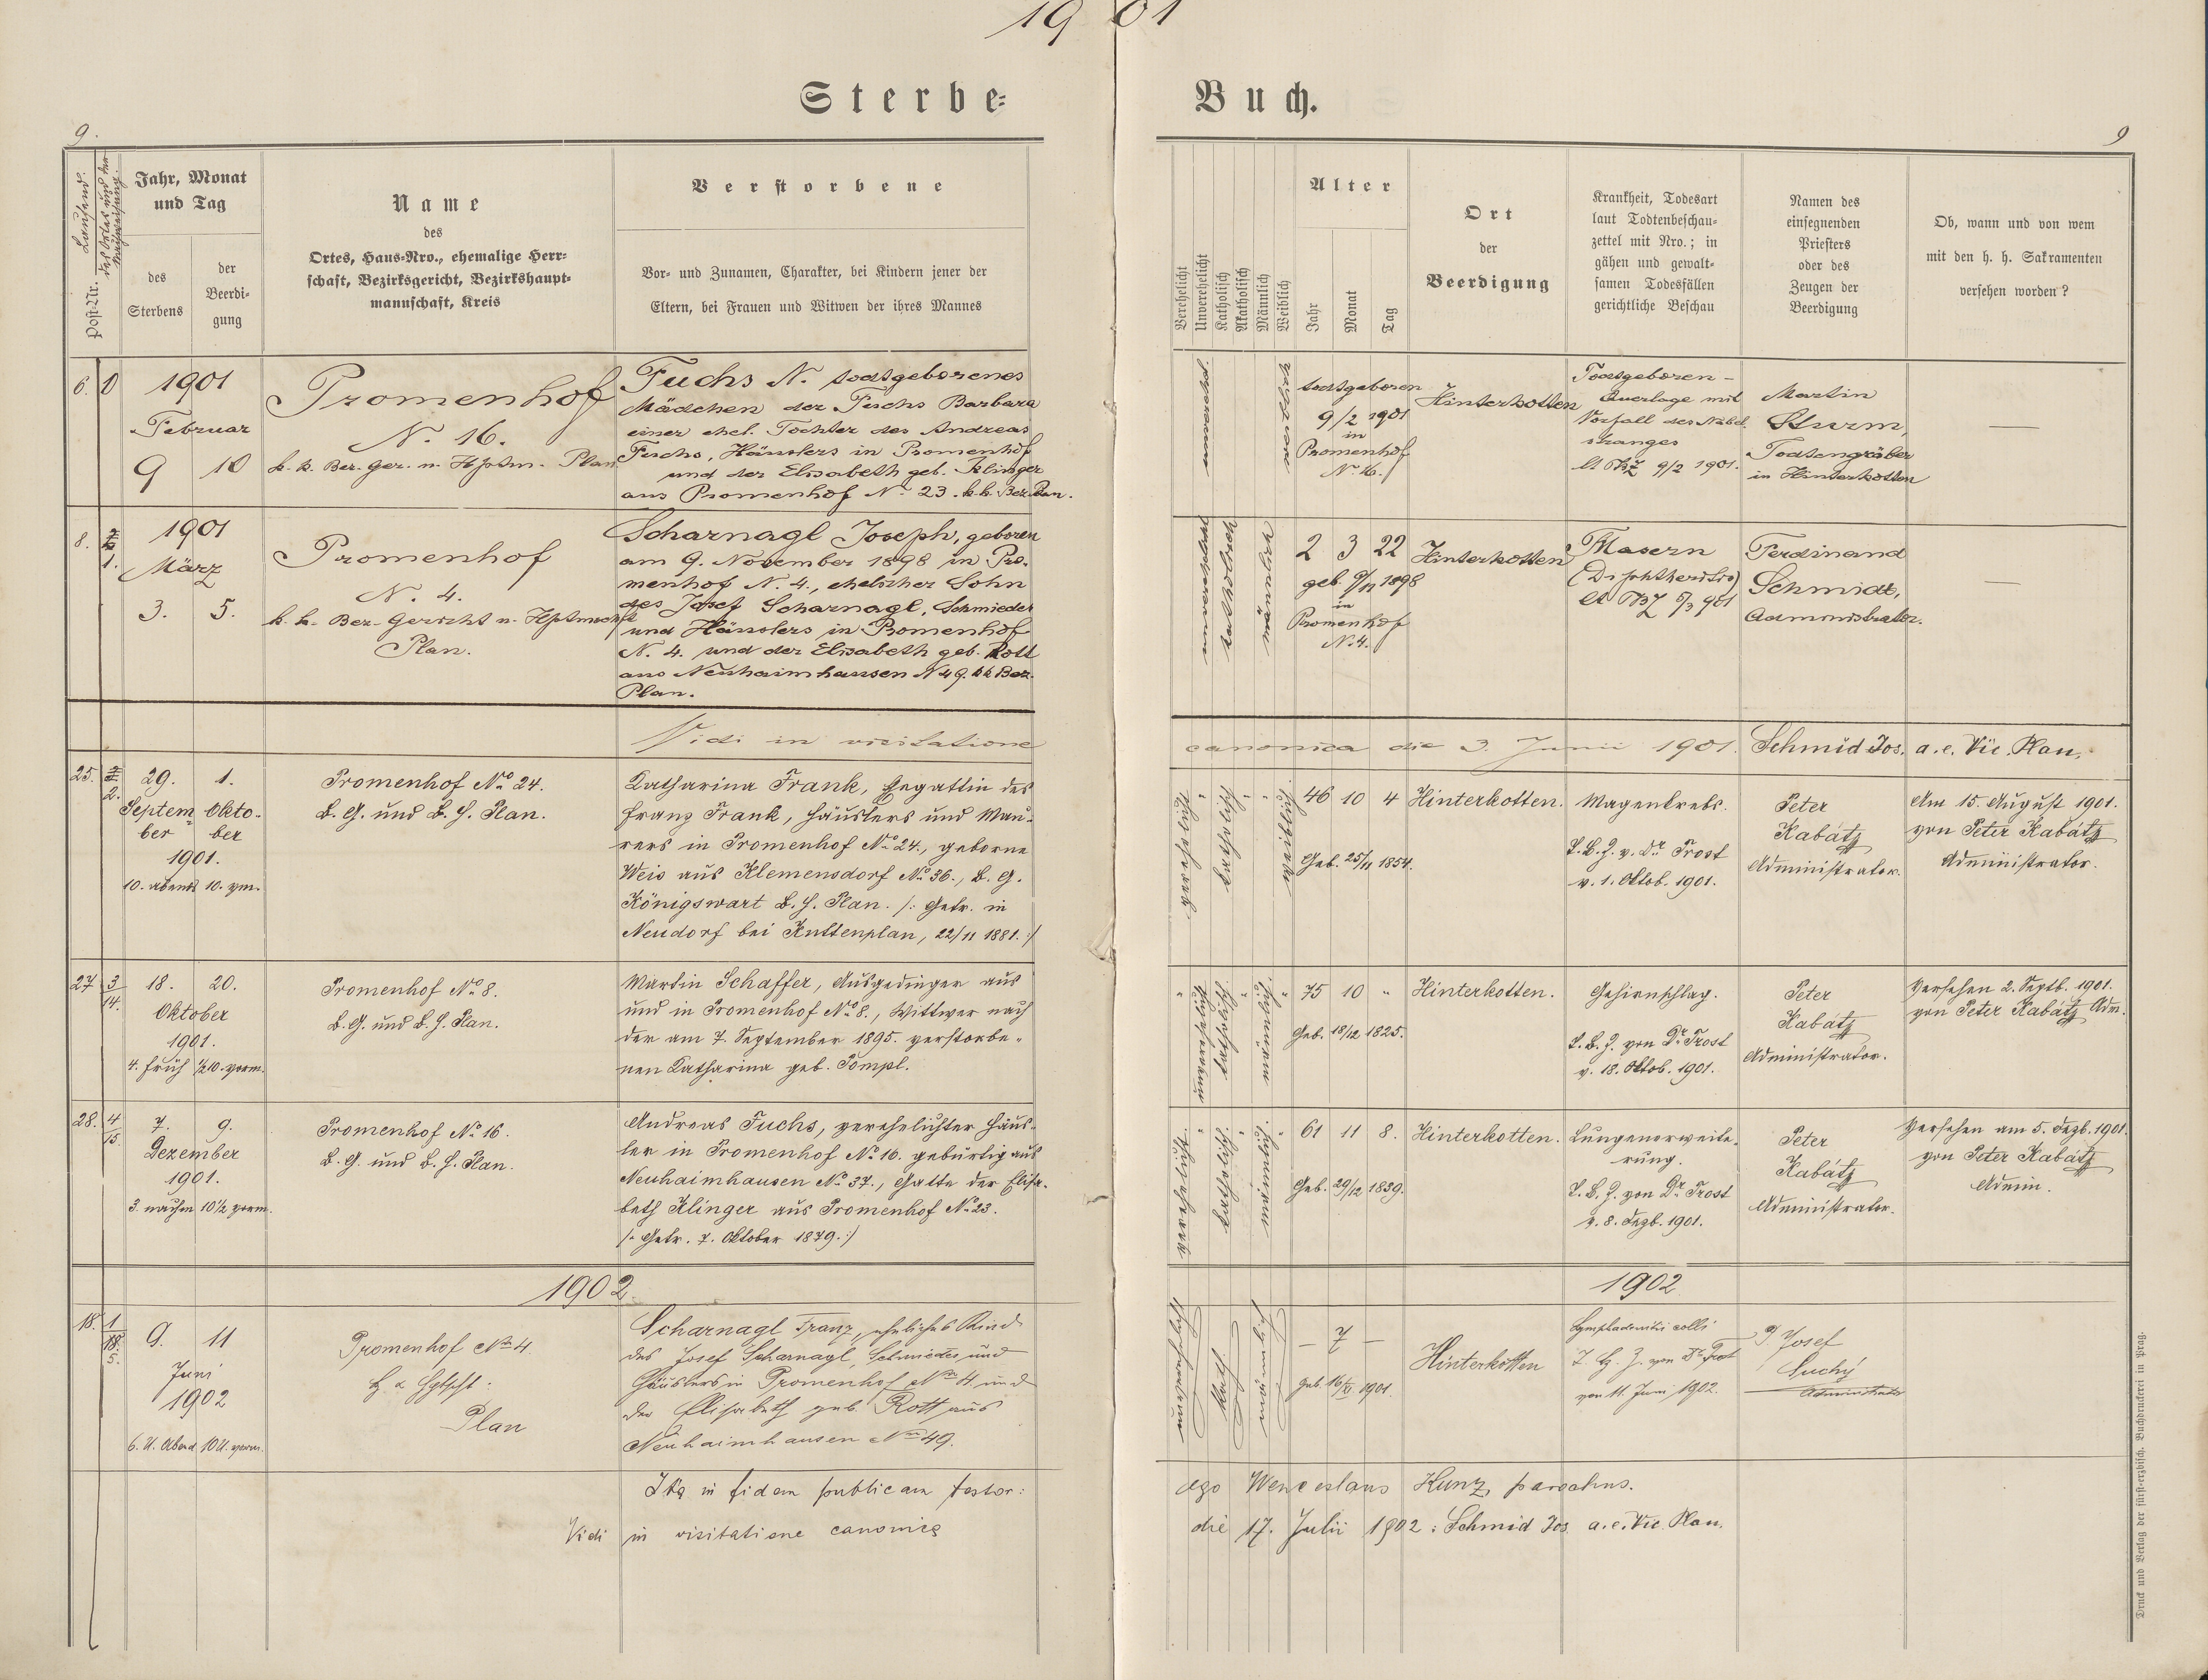 1901
Sterbe-Buch.
9.
9
Postnr. Laufend.
Jahr, Monat
und Tag
des
Sterbens
der
Beerdi-
gung
Name
des
Ortes, Haus-Nro., ehemalige Herr-
schaft, Bezirksgericht, Bezirkshaupt-
mannschaft, Kreis
Verstorbene
Vor- und Zunamen, Charakter, bei Kindern jener der
Eltern, bei Frauen und Witwen der ihres Mannes
Verehelicht
Unverehelicht
Katholisch
Akatholisch
Männlich
Weiblich
Alter
Jahr
Monat
Tag
Ort
der
Beerdigung
Krankheit, Todesart
laut Todtenbeschau-
zettel mit Nro.; in
gähen und gewalt-
samen Todesfällen
gerichtliche Beschau
Namen des
einsegnenden
Priesters
oder des
Zeugen der
Beerdigung
Ob, wann und von wem
mit den h. h. Sakramenten
versehen worden?
6. 0
1901
Februar
9 10
Promenhof
N. 16.
k. k. Bez. Ger. u. Hptm. Plan
Fuchs N. todtgeborenes
Mädchen der Fuchs Barbara
einer ehel. Tochter des Andreas
Fuchs, Häuslers in Promenhof
und der Elisabeth geb. Klinger
aus Promenhof N. 23. k.k. Bez. Plan.
unverehel.
weiblich
todtgeboren
9/2 1901
in
Promenhof
N. 16.
Hinterkotten
Todtgeboren -
Querlage mit
Vorfall des Nabel
stranges
lt TBZ 9/2 1901.
Martin
Sturm,
Todtengräber
in Hinterkotten
8.
1901
März
3. 5.
Promenhof
N. 4.
k. k. Bez. Gericht u. Hptmschft
Plan.
Scharnagl Joseph, geboren
am 9. November 1898 in Pro-
menhof N. 4., ehelicher Sohn
des Josef Scharnagl, Schmiedes
und Häuslers in Promenhof
N. 4. und der Elisabeth geb. Rott
aus Neuhaimhausen N 49. kk Bez.
Plan.
unverehelicht
katholisch
männlich
2 3 22
geb. 9/11 1898
in
Promenhof
N. 4.
Hinterkotten
Masern
(Diphtheritis)
lt TBZ 5/3 901
Ferdinand
Schmidt,
Administrator.
Vidi in visitatione canonica die 3. Junii 1901. Schmid Jos. a. e. Vic. Plan.
25. 2/2.
29. 1.
Septem- Okto-
ber ber
1901.
10. abends 10. vm.
Promenhof No 24.
B. G. und B. H. Plan.
Katharina Frank, Ehegattin des
Franz Frank, Häuslers und Mau-
rers in Promenhof No 24., geborne
Weis aus Klemensdorf No 36., B. G.
Königswart B. H. Plan. /: Getr. in
Neudorf bei Kuttenplan, 22/11 1881. :/
verehelicht
katholisch
weiblich
46 10 4
Geb. 25/11 1854.
Hinterkotten.
Magenkrebs.
T. B. Z. v. Dr Trost
v. 1. Oktob. 1901.
Peter
Kabátz
Administrator.
Am 15. August 1901.
von Peter Kabátz
Administrator.
27 3/14.
18. 20.
Oktober
1901.
4. früh 1/2 10. vorm.
Promenhof No 8.
B. G. und B. H. Plan.
Martin Schaffer, Ausgedinger aus
und in Promenhof No 8., Wittwer nach
der am 7. September 1895. verstorbe-
nen Katharina geb. Pompl.
unverehelicht
katholisch.
männlich.
75 10 "
Geb. 18/12 1825.
Hinterkotten.
Gehirnschlag.
T. B. Z. von Dr Trost
v. 18. Oktob. 1901.
Peter
Kabátz
Administrator.
Versehen 2. Septb. 1901.
von Peter Kabátz Adm.
28. 4/15.
7. 9.
Dezember
1901.
3. nachm 10 1/2 vorm.
Promenhof No 16.
B. G. und B. H. Plan.
Andreas Fuchs, verehelichter Häus-
ler in Promenhof No 16. gebürtig aus
Neuhaimhausen No 37., Gatte der Elisa-
beth Klinger aus Promenhof No 23.
/: Getr. 7. Oktober 1879. :/
verehelicht.
katholisch.
männlich.
61 11 8.
Geb. 29/12 1839.
Hinterkotten.
Lungenerweite-
rung.
T. B. Z. von Dr Trost
v. 8. Dezb. 1901.
Peter
Kabátz
Administrator.
Versehen am 5. Dezb. 1901.
von Peter Kabátz
Admin.
1902
1902
18.
9. 11
Juni
1902
6. U. Abend 10 U. vorm.
Promenhof Nro 4
Plan
Scharnagl Franz, eheliches Kind
des Josef Scharnagl, Schmiedes und
Häuslers in Promenhof Nro 4 und
der Elisabeth geb. Rott aus
Neuhaimhausen Nro 49.
unverehelicht
Kath.
männlich
— 7 —
geb. 16/XI 1901.
Hinterkotten
Lymphadenitis colli
T. B. Z. von Dr Trost
von 11. Juni 1902.
P. Josef
Suchý
Administrator
Ita in fidem publicam testor: ego Wenceslaus Kunz, parochus.
Vidi in visitatione canonica die 17. Julii 1902: Schmid Jos. a. e. Vic. Plan.
Druck und Verlag der fürsterzbisch. Buchdruckerei in Prag.